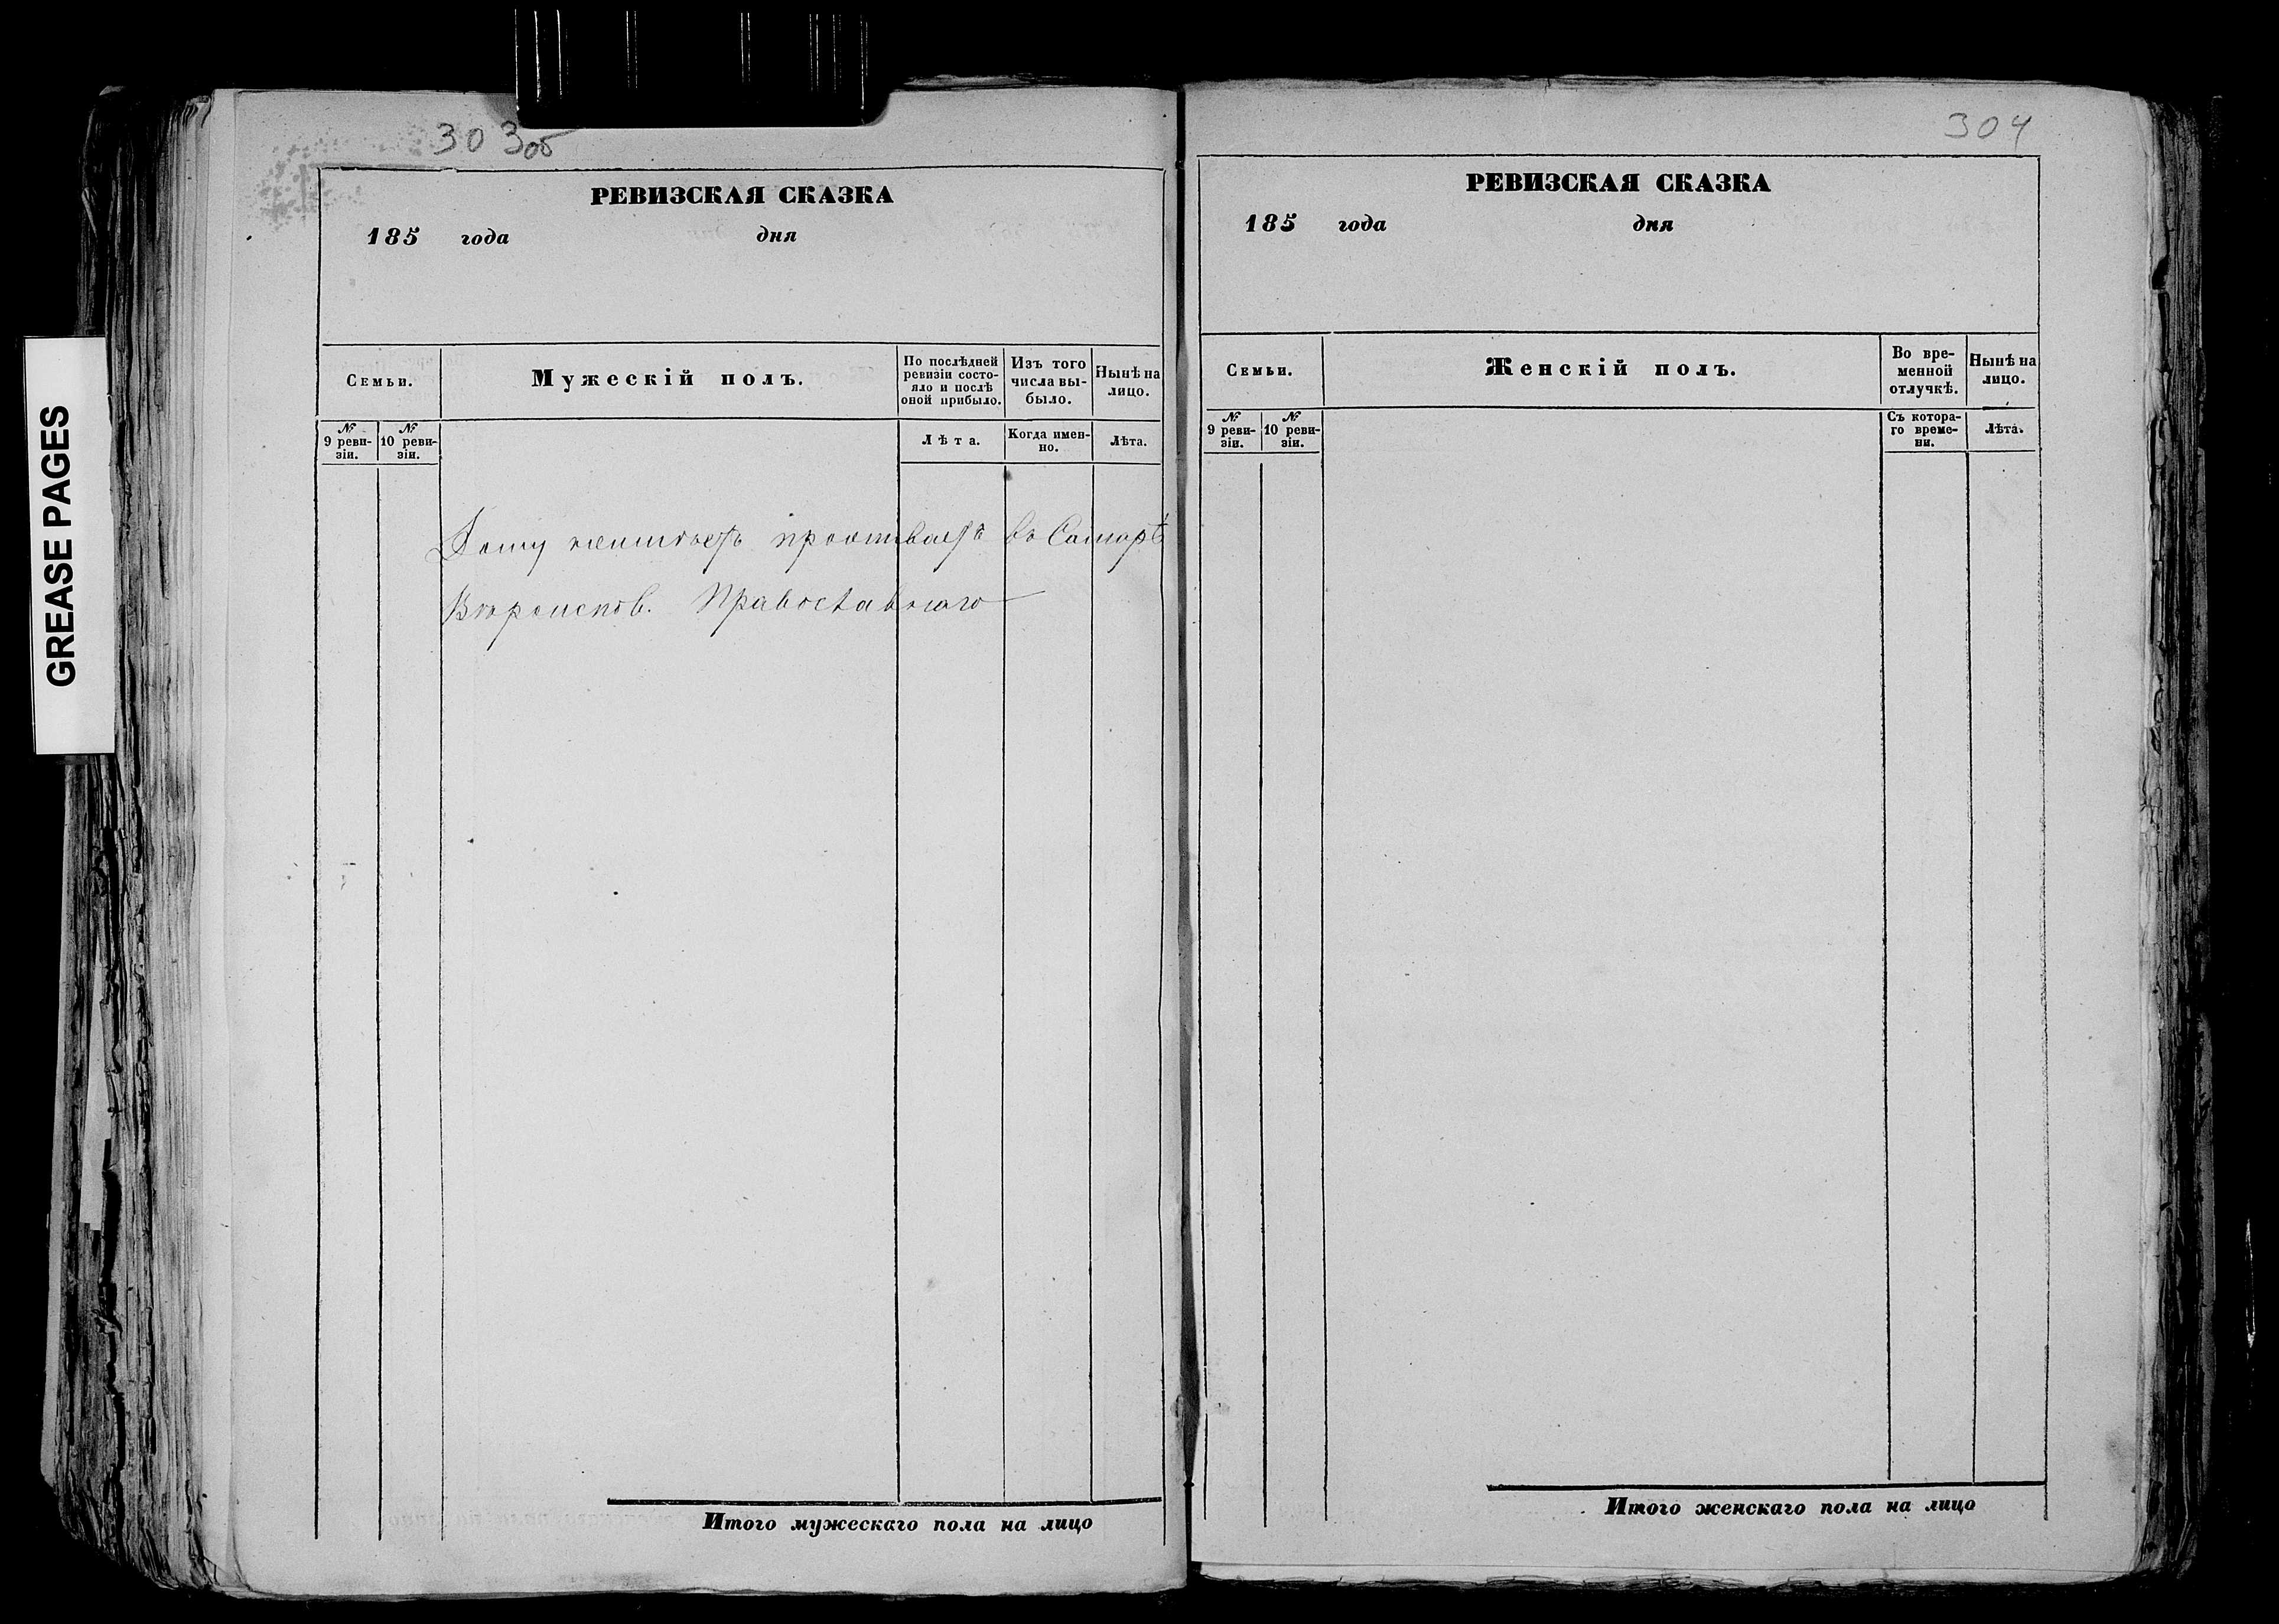 GREASE PAGES
303об
РЕВИЗСКАЯ СКАЗКА
185 года дня
Семьи.
Мужескій полъ.
По послѣдней ревизіи состо-
яло и послѣ
оной прибыло.
Изъ того
числа вы-
было.
Нынѣ на
лицо.
№
9 реви-
зіи.
№
10 реви-
зіи.
Лѣта.
Когда имен-
но.
Лѣта.
Дому неимѣетъ проживаетъ въ Самарѣ
Вѣроиспов. Православнаго
Итого мужескаго пола на лицо
304
РЕВИЗСКАЯ СКАЗКА
185 года дня
Семьи.
Женскій полъ.
Во вре-
менной
отлучкѣ.
Нынѣ на
лицо.
№
9 реви-
зіи.
№
10 реви-
зіи.
Съ котора-
го време-
ни.
Лѣта.
Итого женскаго пола на лицо